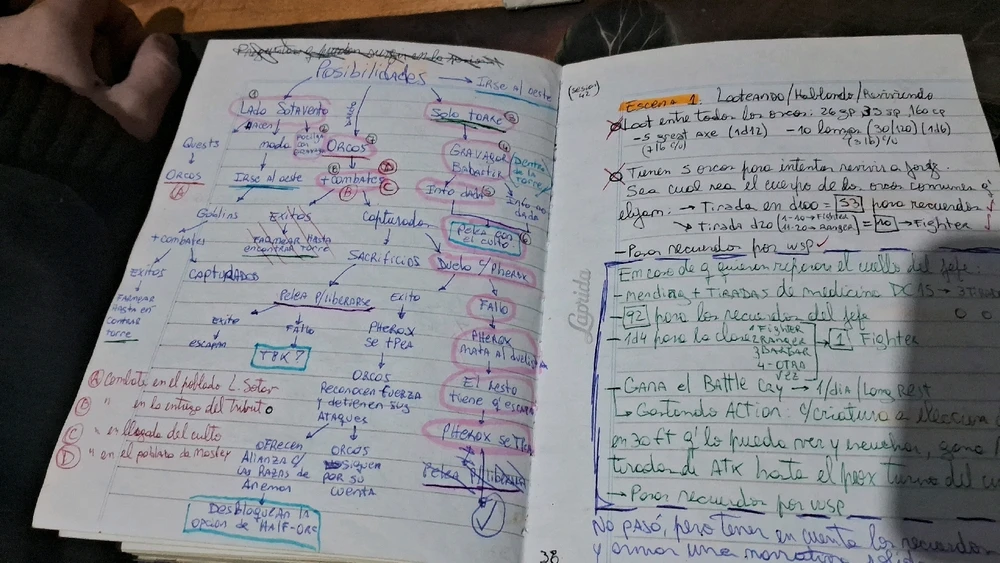 POSIBILIDADES → IRSE AL OESTE
LADO SOTAVENTO
HACEN
Quests
modo
ORCOS
A
IRSE AL OESTE
Goblins
+ combates
EXITOS
FARMEAR HASTA
ENCONTRAR TORRE
CAPTURADOS
EXITOS
FARMEAR
HASTA EN-
CONTRAR
TORRE
ORCOS
+ COMBATES
B
D
C
CAPTURADOS
SACRIFICIOS
PELEA P/LIBERARSE
EXITO
escapan
FALLO
TPK?
EXITO
PHEROX
SE TPEA
ORCOS
Reconocen FUERZA
y detienen sus
ATAQUES
OFRECEN
Alianza c/
las RAZAS de
Anemos
Desbloquean la
opcion de HALF-ORC
ORCOS
siguen
por su
cuenta
SOLO TORRE
GRAVAGOR
BABACTER
Dentro
de la
TORRE
Info dada
Info no
dada
Pelea con
el culto
Duelo c/ Pherox
FALLO
PHEROX
MATA AL duelista
El resto
tiene q' escapar
PHEROX SE TPEA
Pelea P/liberarse
A Combate en el poblado L. Sotav
" en la entrega del Tributo
C " en llegada del culto
D " en el poblado de Mosley
(sesion
42)
Escena 1. Looteando/Hablando/Reviviendo
Loot entre todos los orcos: 26 gp 33 sp 160 cp
- 5 great axe (1d12) - 10 lanzas (30/120) (1d6)
(7 lb c/u) (3 lb) c/u
Tienen 5 orcos para intentar revivir a Jorge
Sea cual sea el cuerpo de los orcos comunes q'
elijan: → Tirada en d100 = 53 para recuerdos
→ Tirada d20 (1-10 → Fighter
(11-20 → Ranger) = 10 → Fighter
- Pasar recuerdos por wsp ✓
En caso de q' quieran reparar el cuello del jefe:
- mending + TIRADAS de medicina DC 15 → 3
92 para los recuerdos del jefe
- 1d4 para la clase
1 FIGHTER
2 RANGER
3 BARBAR
4 - OTRA
VEZ
→ 1 Fighter
- GANA el Battle Cry → 1/dia/Long Rest
↳ Gastando ACTION: c/criatura a eleccion
en 30 ft q' lo pueda ver y escuchar, gana
tiradas de ATK hasta el prox turno del
→ Pasar recuerdos por wsp
NO PASÓ, pero tener en cuenta los recuerdos
y armar una narrativa
Laprida
38